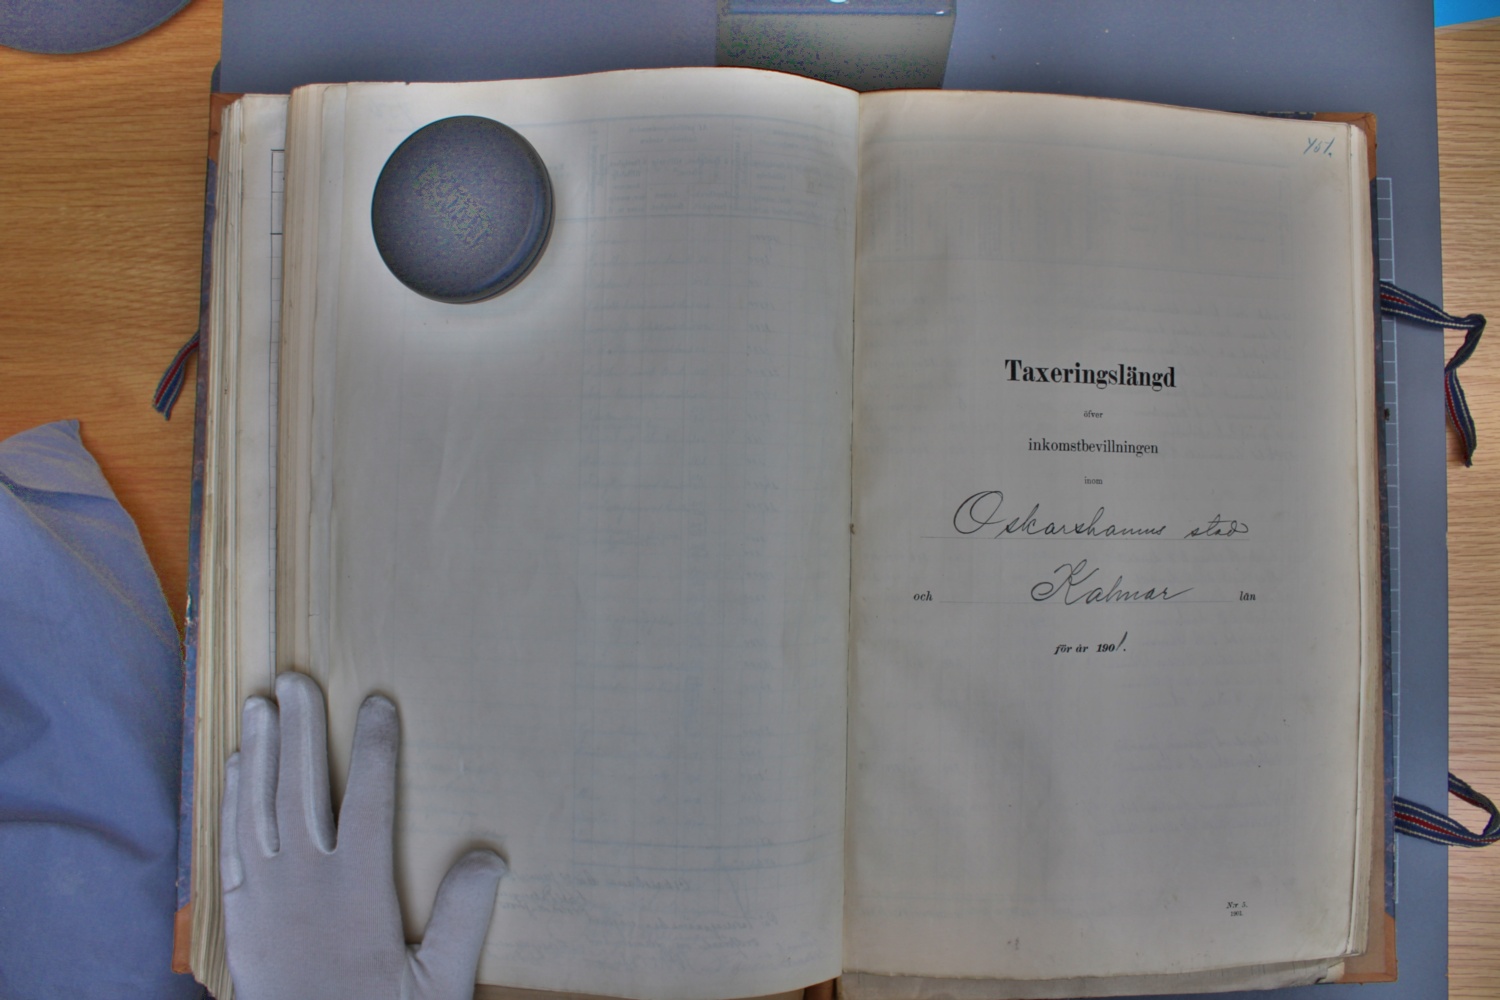 Taxeringslängd
öfver
inkomstbevillningen
inom
Oskarshamns stad
och Kalmar län
för år 1901.
N:r 3.
1901.